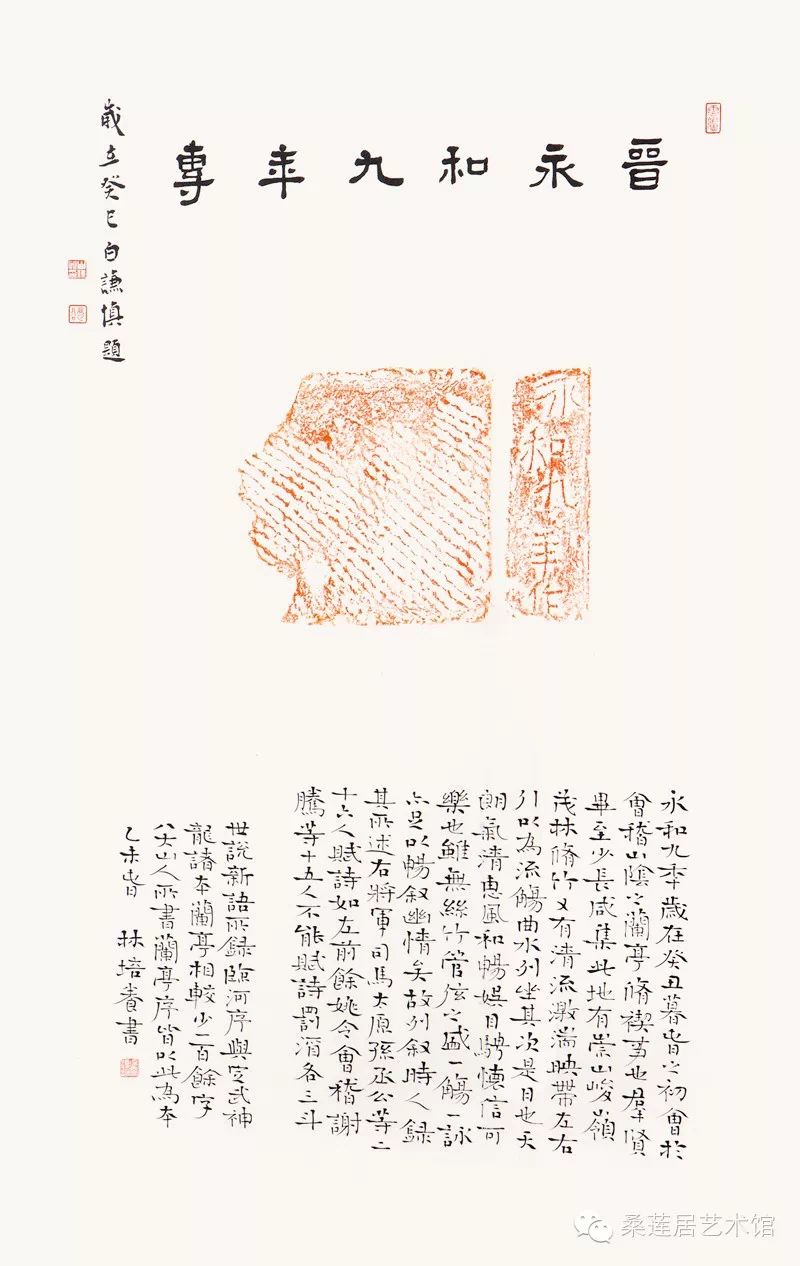 晉永和九年專
歲在癸巳白謙慎題
永和九年作
永和九年歲在癸丑暮春之初會於
會稽山陰之蘭亭脩禊事也羣賢
畢至少長咸集此地有崇山峻嶺
茂林脩竹又有清流激湍映帶左右
引以為流觴曲水列坐其次是日也天
朗氣清惠風和暢娛目騁懷信可
樂也雖無絲竹管弦之盛一觴一詠
亦足以暢敘幽情矣故列敘時人錄
其所述右將軍司馬太原孫丞公等二
十六人賦詩如左前餘姚令會稽謝
騰等十五人不能賦詩罰酒各三斗
世說新語所錄臨河序與定武神
龍諸本蘭亭相較少一百餘字
八大山人所書蘭亭序皆以此為本
乙未春 林培養書
桑莲居艺术馆